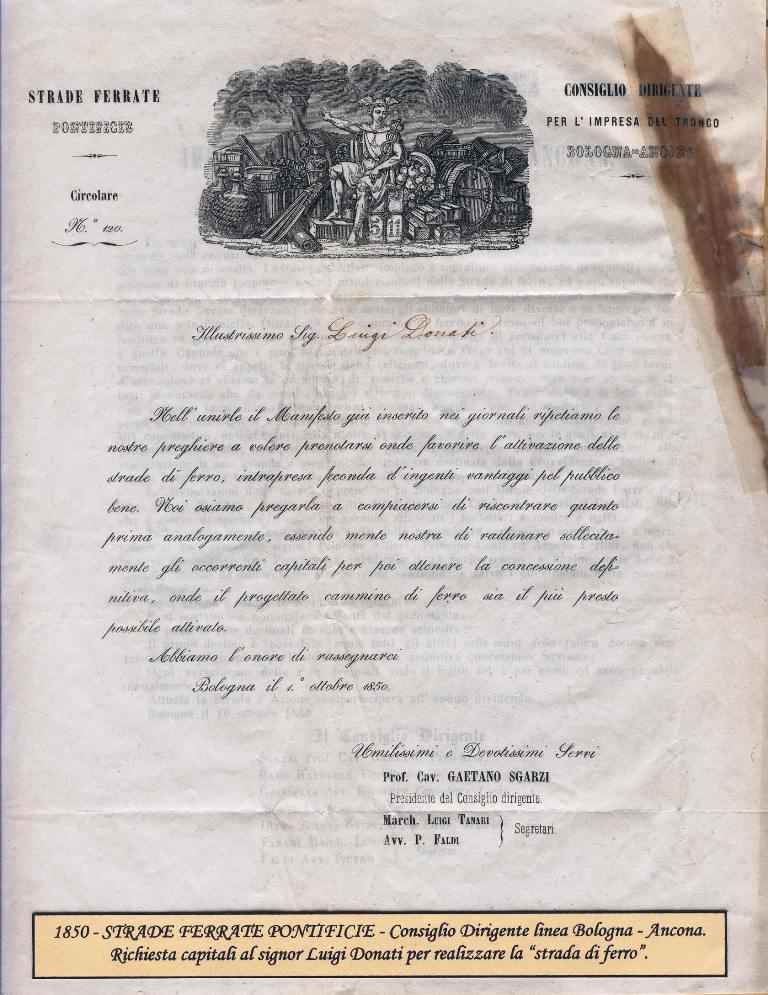 STRADE FERRATE
PONTIFICIE
Circolare
N.° 120.
CONSIGLIO DIRIGENTE
PER L' IMPRESA DEL TRONCO
BOLOGNA-ANCONA
Illustrissimo Sig. Luigi Donati.
Nell' unirle il Manifesto già inserito nei giornali ripetiamo le
nostre preghiere a volere prenotarsi onde favorire l'attivazione delle
strade di ferro, intrapresa feconda d'ingenti vantaggi pel pubblico
bene. Noi osiamo pregarla a compiacersi di riscontrare quanto
prima analogamente, essendo mente nostra di radunare sollecita-
mente gli occorrenti capitali per poi ottenere la concessione defi-
nitiva, onde il progettato cammino di ferro sia il più presto
possibile attivato.
Abbiamo l'onore di rassegnarci
Bologna il 1.° ottobre 1850.
Umilissimi e Devotissimi Servi
Prof. Cav. GAETANO SGARZI
Presidente del Consiglio dirigente.
March. LUIGI TANARI
Avv. P. FALDI
Segretari.
1850 - STRADE FERRATE PONTIFICIE - Consiglio Dirigente linea Bologna - Ancona.
Richiesta capitali al signor Luigi Donati per realizzare la "strada di ferro".